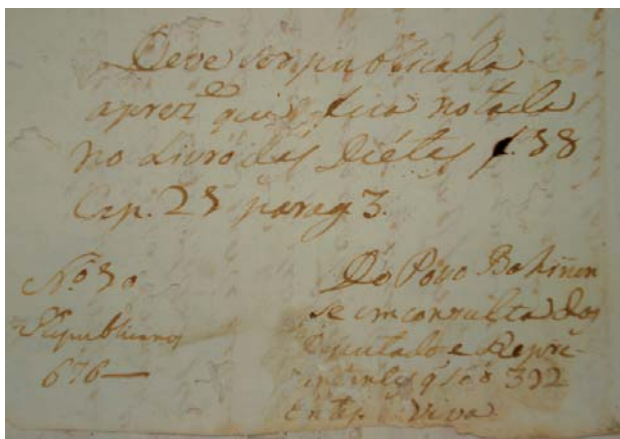 Deve ser publicada
aprez.e que fica notada
no Livro das Diétas f. 38
Cap. 25 parag 3.
Nº 50
Republicanos
676—
Do Povo Bahinen
se em consulta dos
Deputados e Repre-
q São 392
Entes. Viva